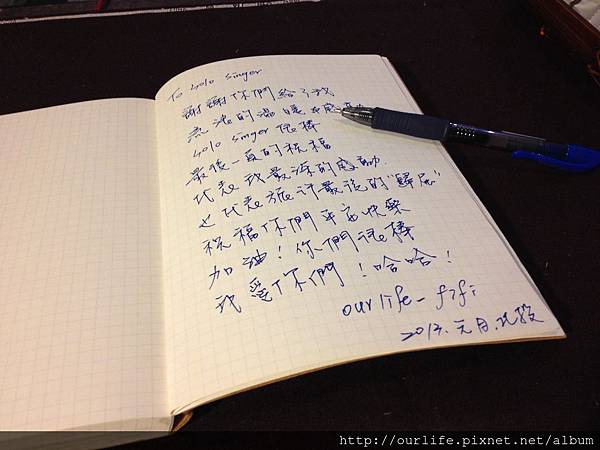 To solo singer
謝謝你們給了我
無比的溫暖與感動
solo singer 很棒
最後一頁的祝福
代表我最深的感動
也代表旅行最後的"歸屬"
祝福你們平安快樂
加油！你們很棒
我愛你們！哈哈！
ourlife-fifi
2013.元月.北投
http://ourlife.pixnet.net/album